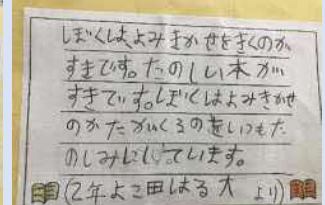 ぼくは、よみきかせをきくのが
すきです。たのしい本が
すきです。ぼくはよみきかせ
のかたがくるのをいつもた
のしみにしています。
(2年よこ田はる大 より)